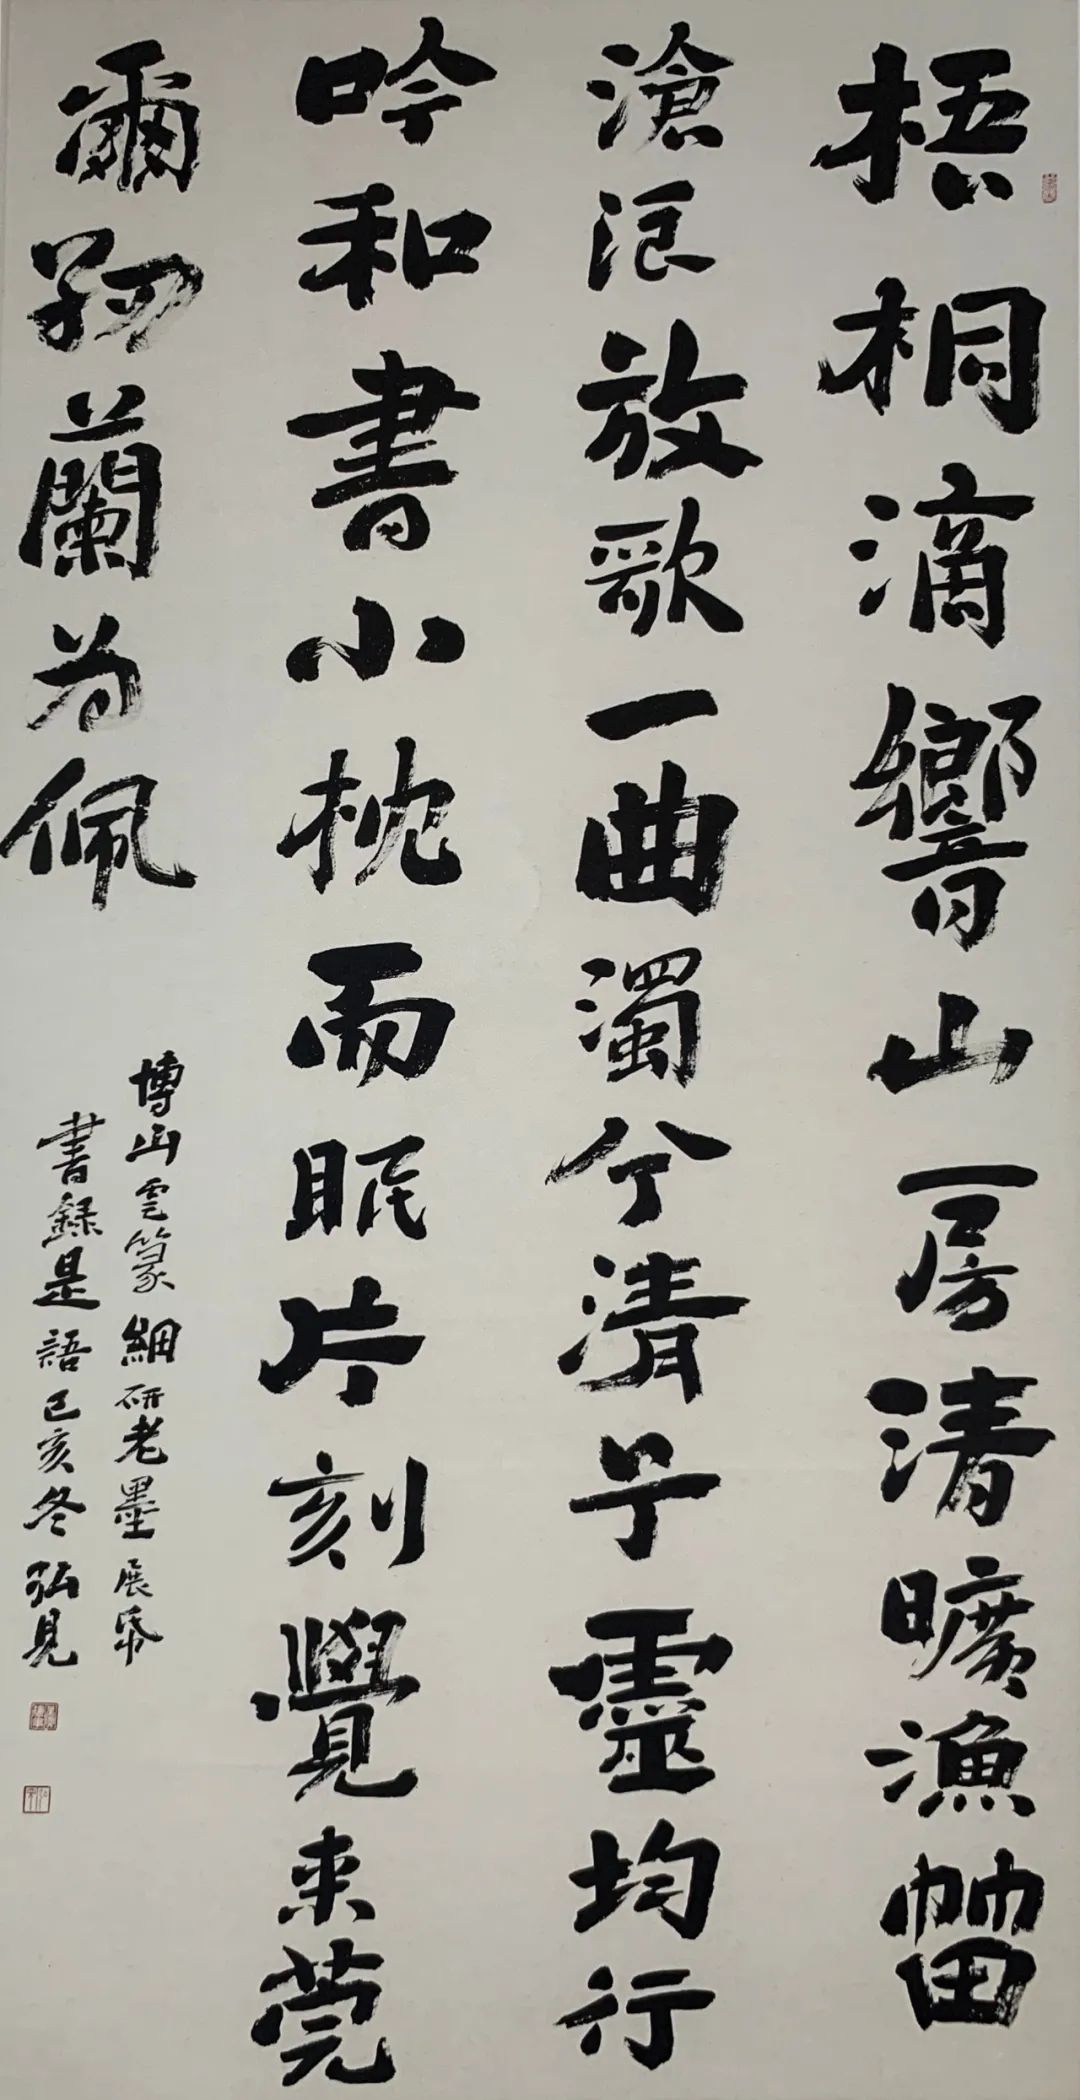 梧桐滴響山房清曠漁
滄浪放歌一曲濁兮清兮靈均行
吟和書小枕而眠片刻覺來莞
爾紉蘭為佩
博山雲篆細研老墨展帋
書録是語己亥冬弘見